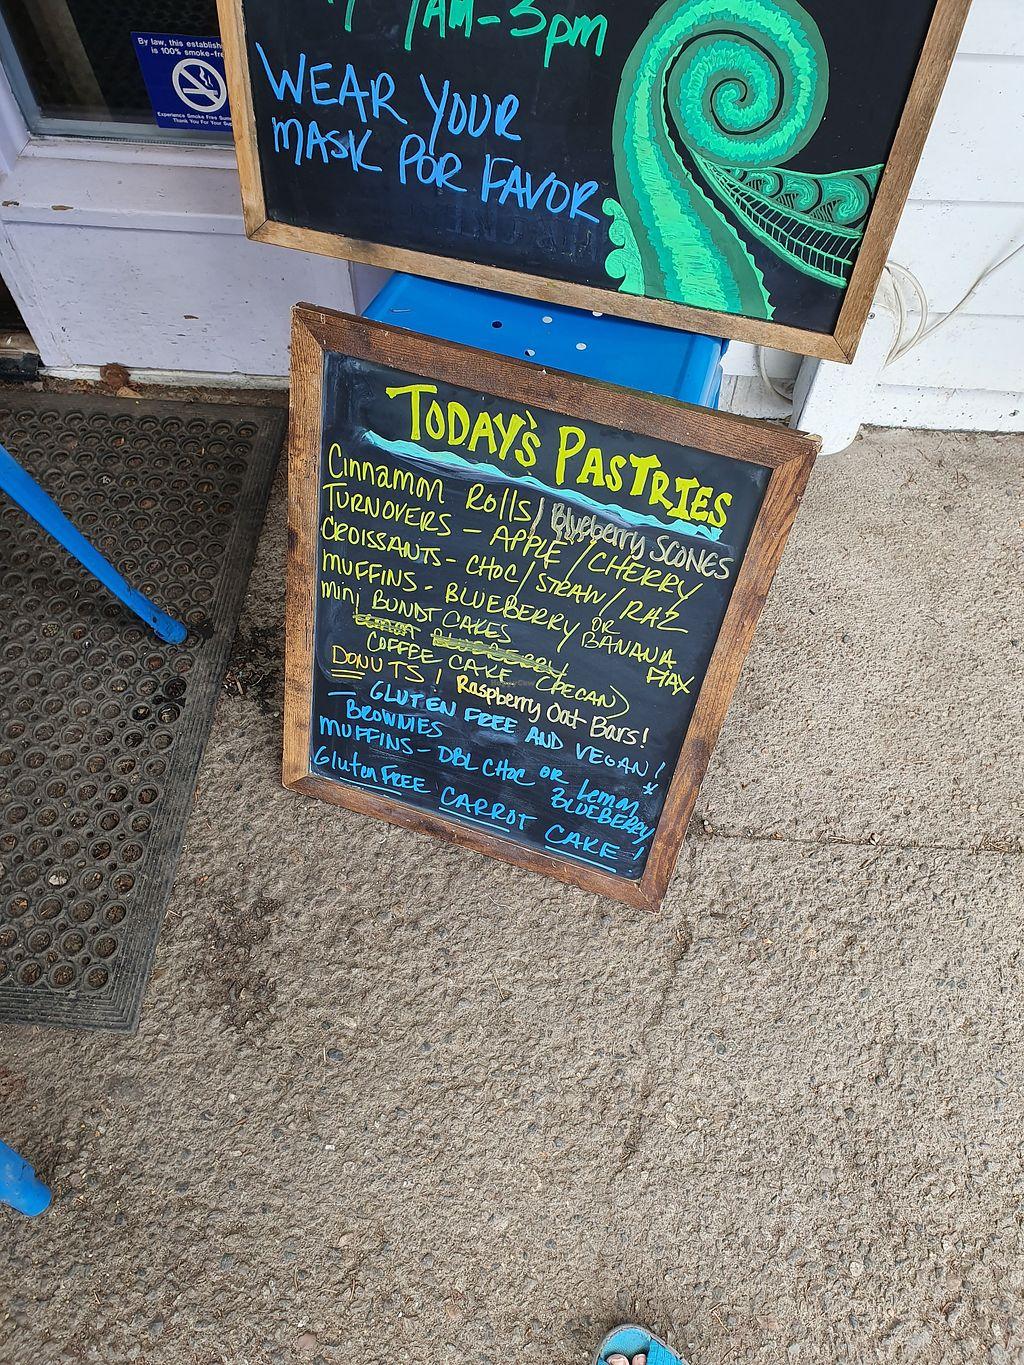 7AM-3pm
WEAR YOUR
MASK POR FAVOR
By law, this establish
is 100% smoke-fre
TODAY'S PASTRIES
Cinnamon Rolls/Blueberry SCONES
TURNOVERS - APPLE/CHERRY
CROISSANTS - CHOC/STRAW/RAZ
MUFFINS - BLUEBERRY OR BANANA FLAX
mini BUNDT CAKES
COFFEE CAKE (PECAN)
DONUTS! Raspberry Oat Bars!
- GLUTEN FREE AND VEGAN!
BROWNIES
MUFFINS - DBL CHOC OR Lemon BLUEBERRY
Gluten FREE CARROT CAKE!